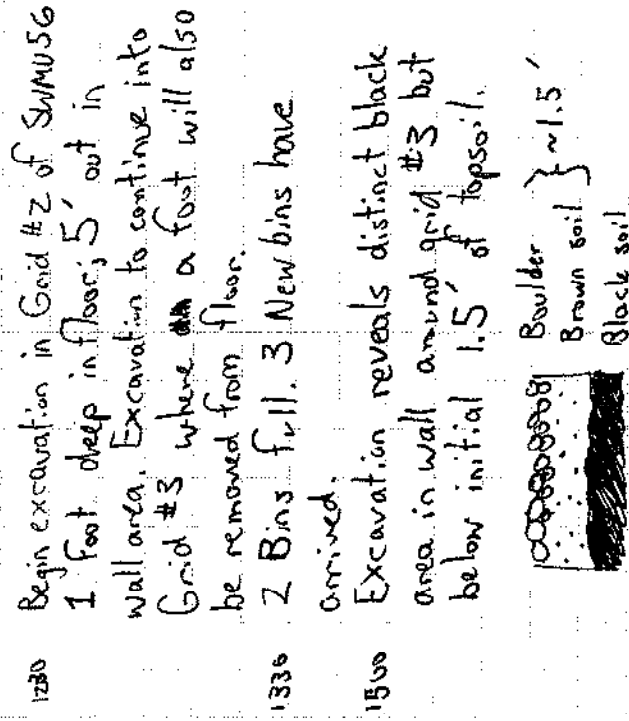 1230 Begin excavation in Grid #2 of SWMU56
1 foot deep in floor; 5' out in
wall area. Excavation to continue into
Grid #3 where a foot will also
be removed from floor.
1330 2 Bins full. 3 New bins have
arrived.
1500 Excavation reveals distinct black
area in wall around grid #3 but
below initial 1.5' of topsoil.
Boulder
Brown soil } ~1.5'
Black soil